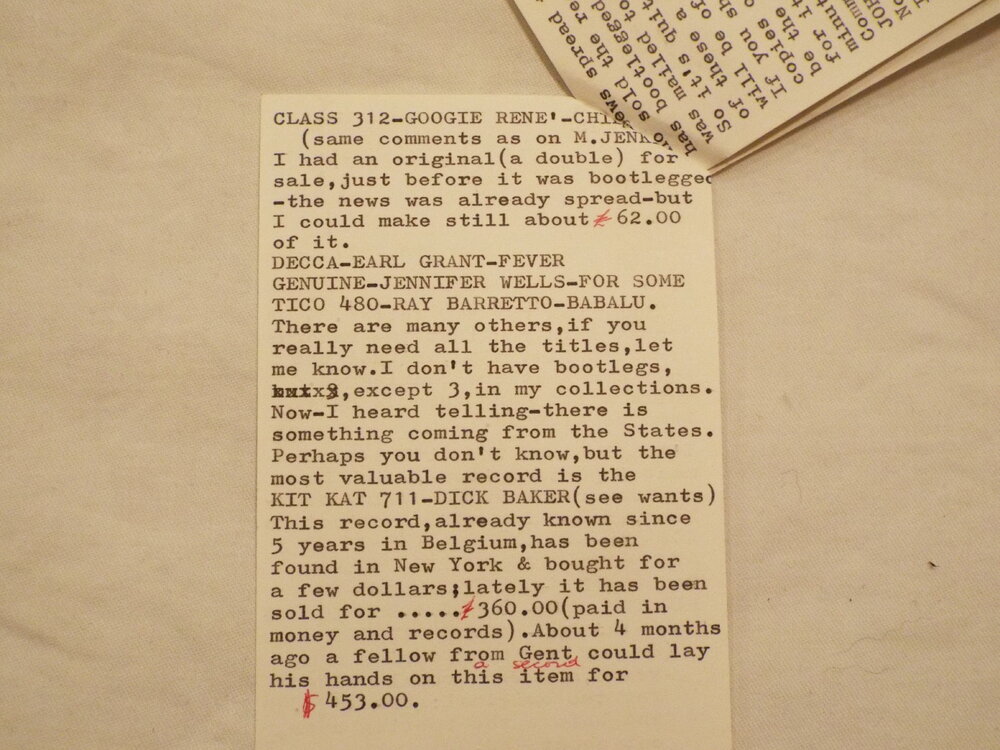 CLASS 312-GOOGIE RENE'-CHI
(same comments as on M.JENK
I had an original(a double) for
sale,just before it was bootlegged
-the news was already spread-but
I could make still about $ 62.00
of it.
DECCA-EARL GRANT-FEVER
GENUINE-JENNIFER WELLS-FOR SOME
TICO 480-RAY BARRETTO-BABALU.
There are many others,if you
really need all the titles,let
me know.I don't have bootlegs,
,except 3,in my collections.
Now-I heard telling-there is
something coming from the States.
Perhaps you don't know,but the
most valuable record is the
KIT KAT 711-DICK BAKER(see wants)
This record,already known since
5 years in Belgium,has been
found in New York & bought for
a few dollars;lately it has been
sold for .....$360.00(paid in
money and records).About 4 months
ago a fellow from Gent could lay
a second
his hands on this item for
$ 453.00.
ews spread
sold the re
has bootlegged
was mailed to
So it's quit
of these a
will be of
If you sh
copies
be the
for it
minut
Comm
JOH
No